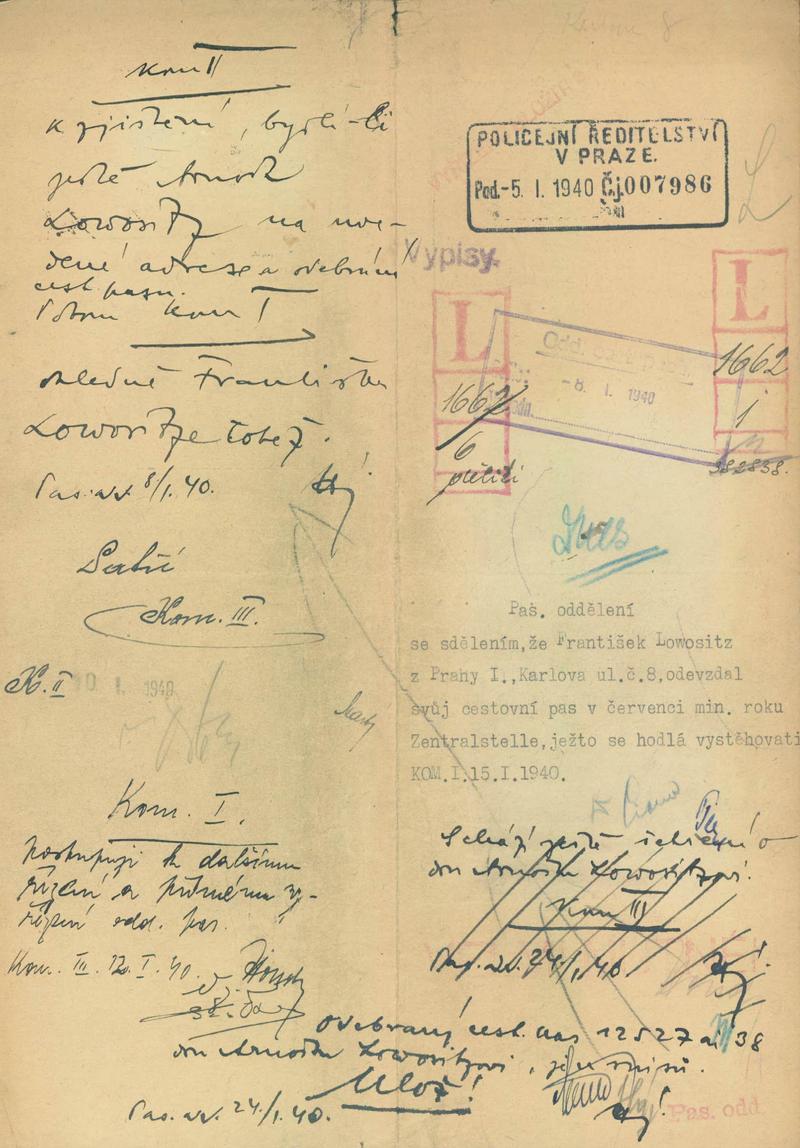 Kom II
k zjištění, bydlí-li
ještě Arnošt
Lowositz na uve-
dené adrese a odebrání
cest. pasu.
Potom Kom I
ohledně Františka
Lowositze totéž.
Pas. odd. 8/1. 40.
Kom. III.
K. II
10 I. 1940
Kom. I.
postupuji k dalšímu
řízení a přímému vy-
řízení odd. pas.
Kom. III. 12. I. 40.
POLICEJNÍ ŘEDITELSTVÍ
V PRAZE.
Pod.-5. I. 1940 Čj.007986
Výpisy.
L
L
1662
1
1662
6
-8. I. 1940
382838.
Pas. oddělení
se sdělením,že František Lowositz
z Prahy I.,Karlova ul.č.8,odevzdal
svůj cestovní pas v červenci min. roku
Zentralstelle,ježto se hodlá vystěhovati
KOM.I.15.I.1940.
Schází ještě šetření o
Arnoštu Lowositzovi.
Kom III
24/1. 40
Odebraný cest. pas 12527 38
Arnoštu Lowositzovi, je u spisů.
Ulož!
24/1. 40.
Pas. odd.